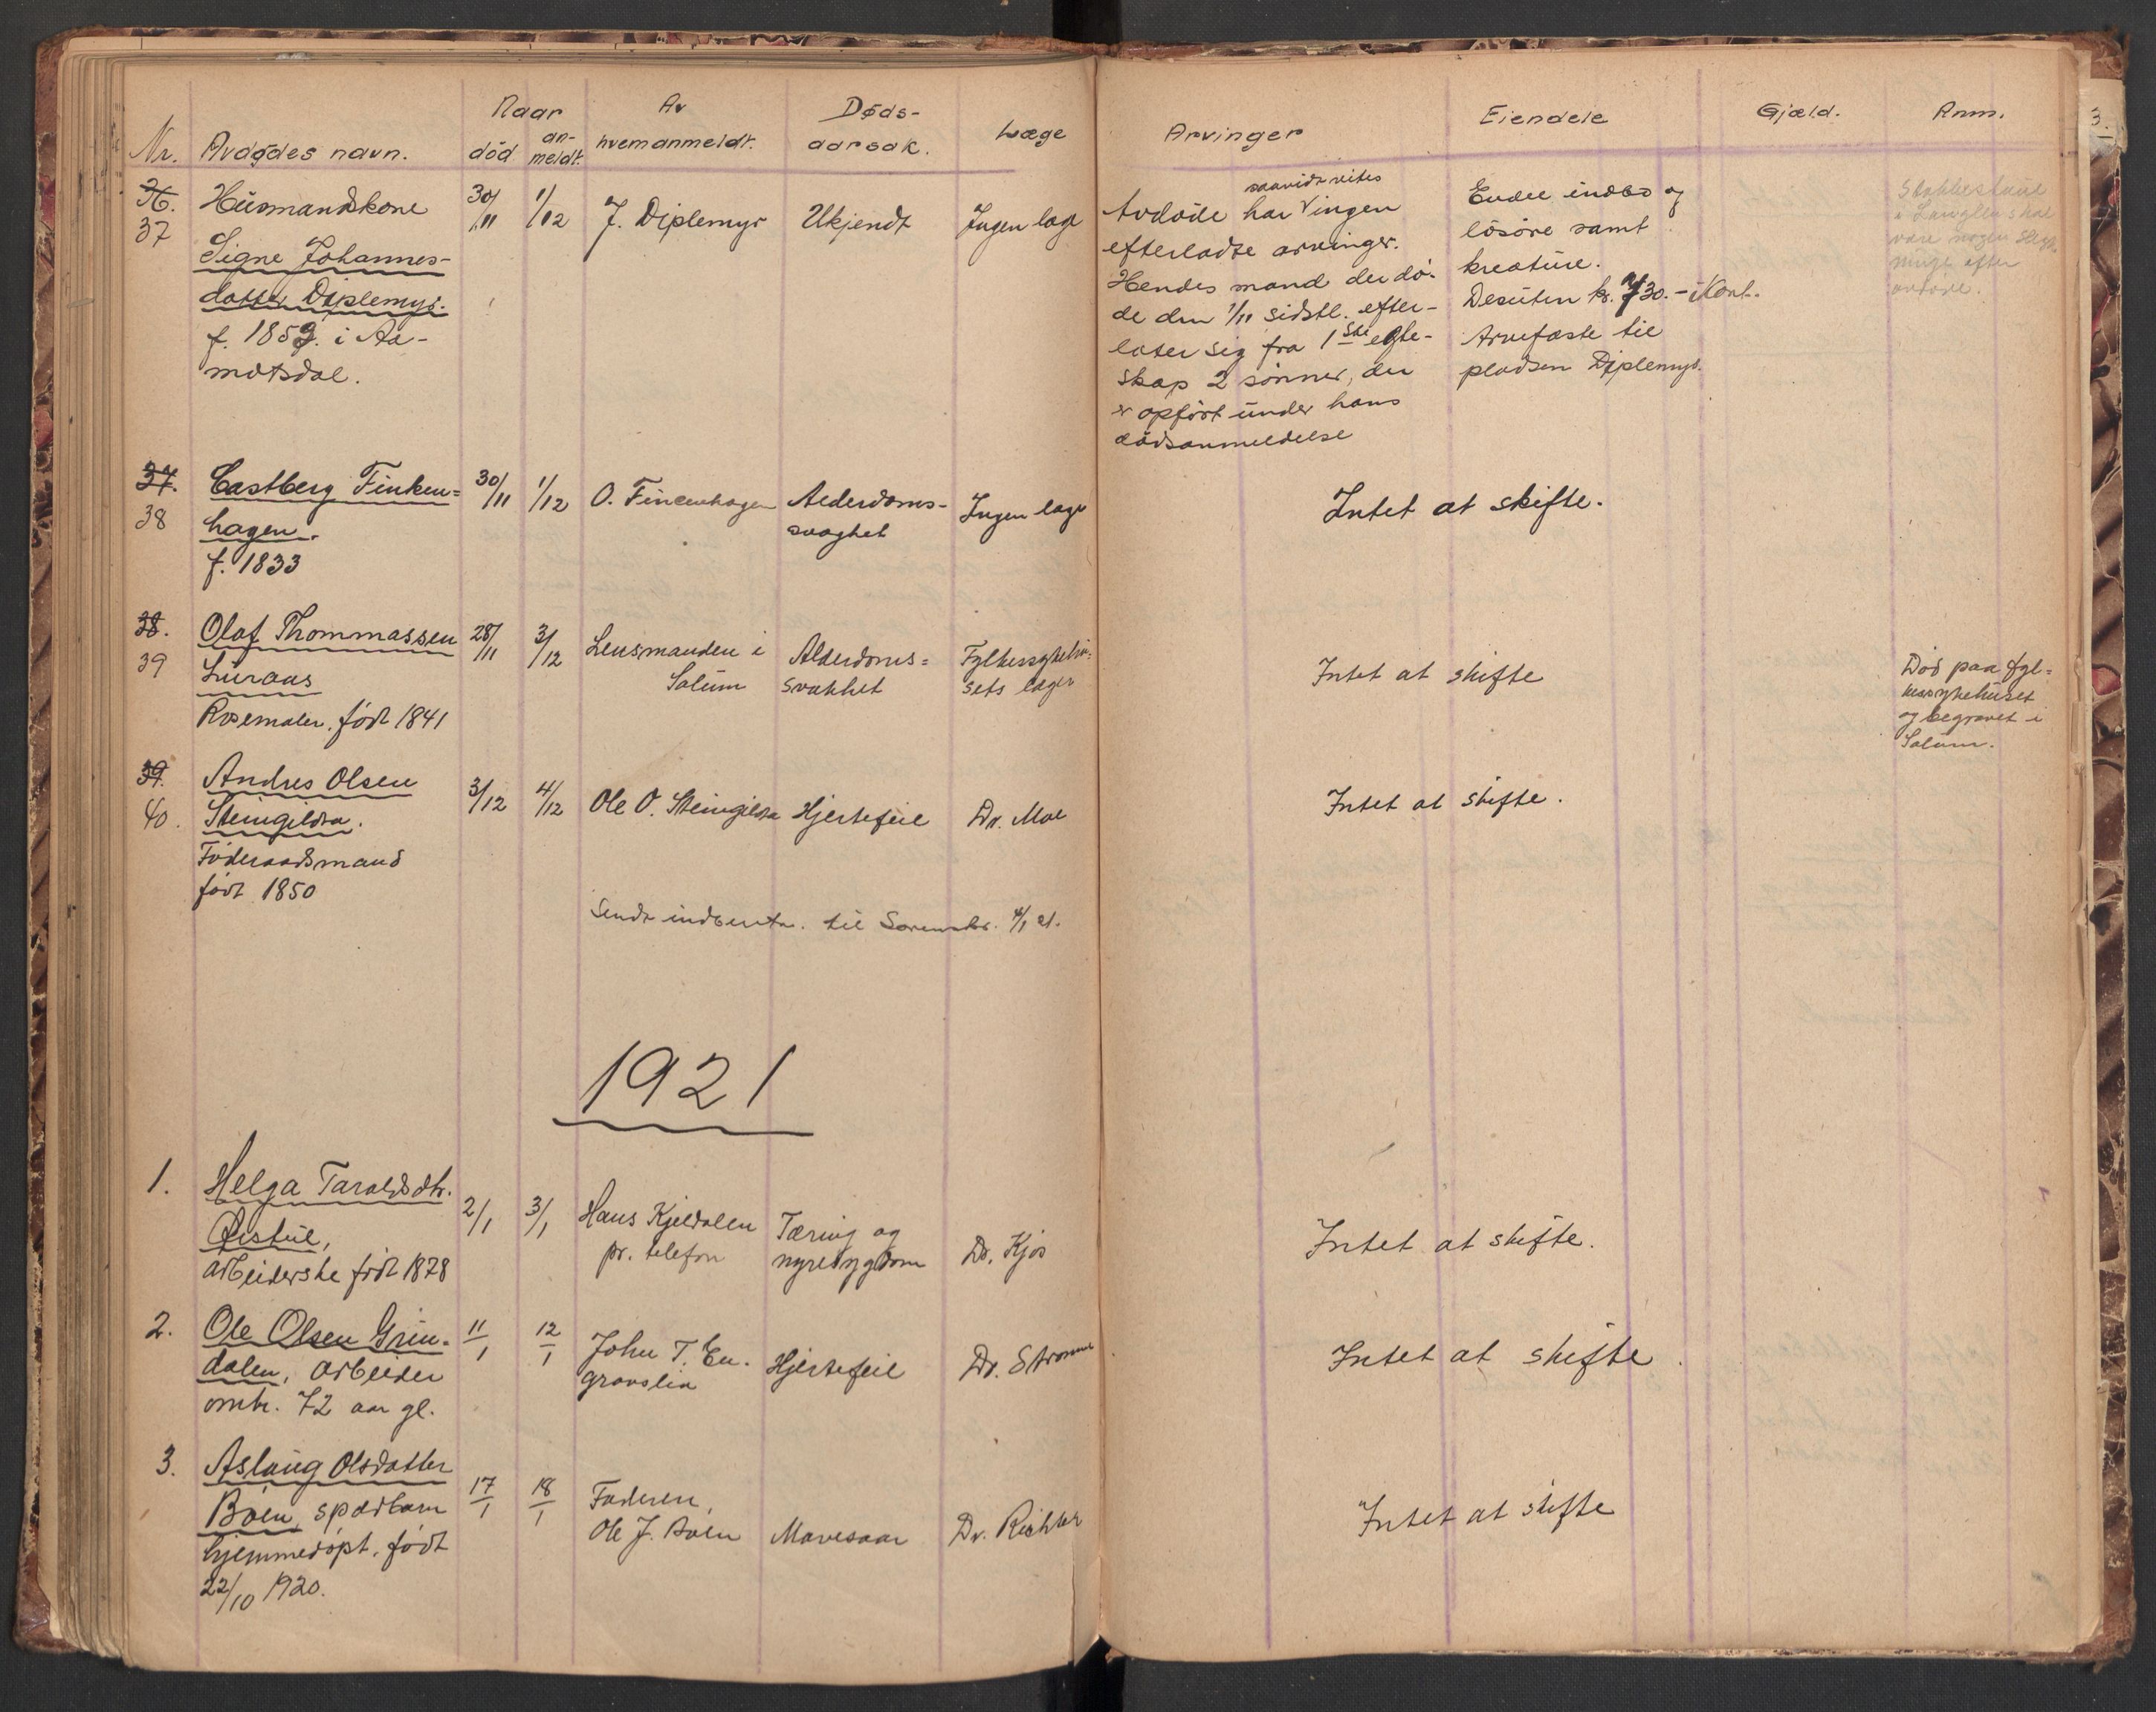 Nr. Avdødes navn. Naar død an-meldt. Av hvem anmeldt. Døds-aarsak. Læge Arvinger Eiendele Gjæld. Anm.
3.
36.
37
Husmandskone
Signe Johannes-
datter Diplemyr.
f. 1859. i Aa-
motsdal.
30/11 1/12 J. Diplemyr Ukjendt Ingen læge
saavidt vites
Avdøde har ingen
efterladte arvinger.
Hendes mand der dø-
de den 1/11 sidstl. efter-
later sig fra 1ste egte-
skap 2 sønner, der
er opført under hans
dødsanmeldelse
Endel indbo og
løsøre samt
kreature.
Desuten kr. 730.- i Kont.
Arvefæste til
pladsen Diplemyr.
37.
38
Castberg Finken=
hagen.
f. 1833
30/11 1/12 O. Finckenhagen Alderdoms-
svaghet
Ingen læge
Intet at skifte.
38.
39
Olaf Thommassen
Luraas
Rosemaler, født 1841
28/11 3/12 Lensmanden i
Solum
Alderdoms=
svakhet
Fylkessykehu-
sets læger
Intet at skifte
Død paa fyl=
kessykehuset
og begravet i
Solum.
39.
40.
Andres Olsen
Steingilda.
Føderaadsmand
født 1850
3/12 4/12 Ole O. Steingilda Hjertefeil Dr. Moe
Intet at skifte.
Sendt indberetn. til Sorenskr. 4/1 21.
1921
1. Helga Taraldsdtr.
Øistul,
arbeiderske født 1878
2/1 3/1 Hans Kjeldalen
pr. telefon
Tæring og
nyresygdom
Dr. Kjos
Intet at skifte.
2. Ole Olsen Grin-
dalen, arbeider
omtr. 72 aar gl.
11/1 12/1 John T. En-
gravslia
Hjertefeil Dr. Stromme
Intet at skifte.
3. Aslaug Olsdatter
Bøen, spædbarn
hjemmedøpt, født
22/10 1920.
17/1 18/1 Faderen,
Ole J. Bøen Mavesaar Dr. Richter
Intet at skifte